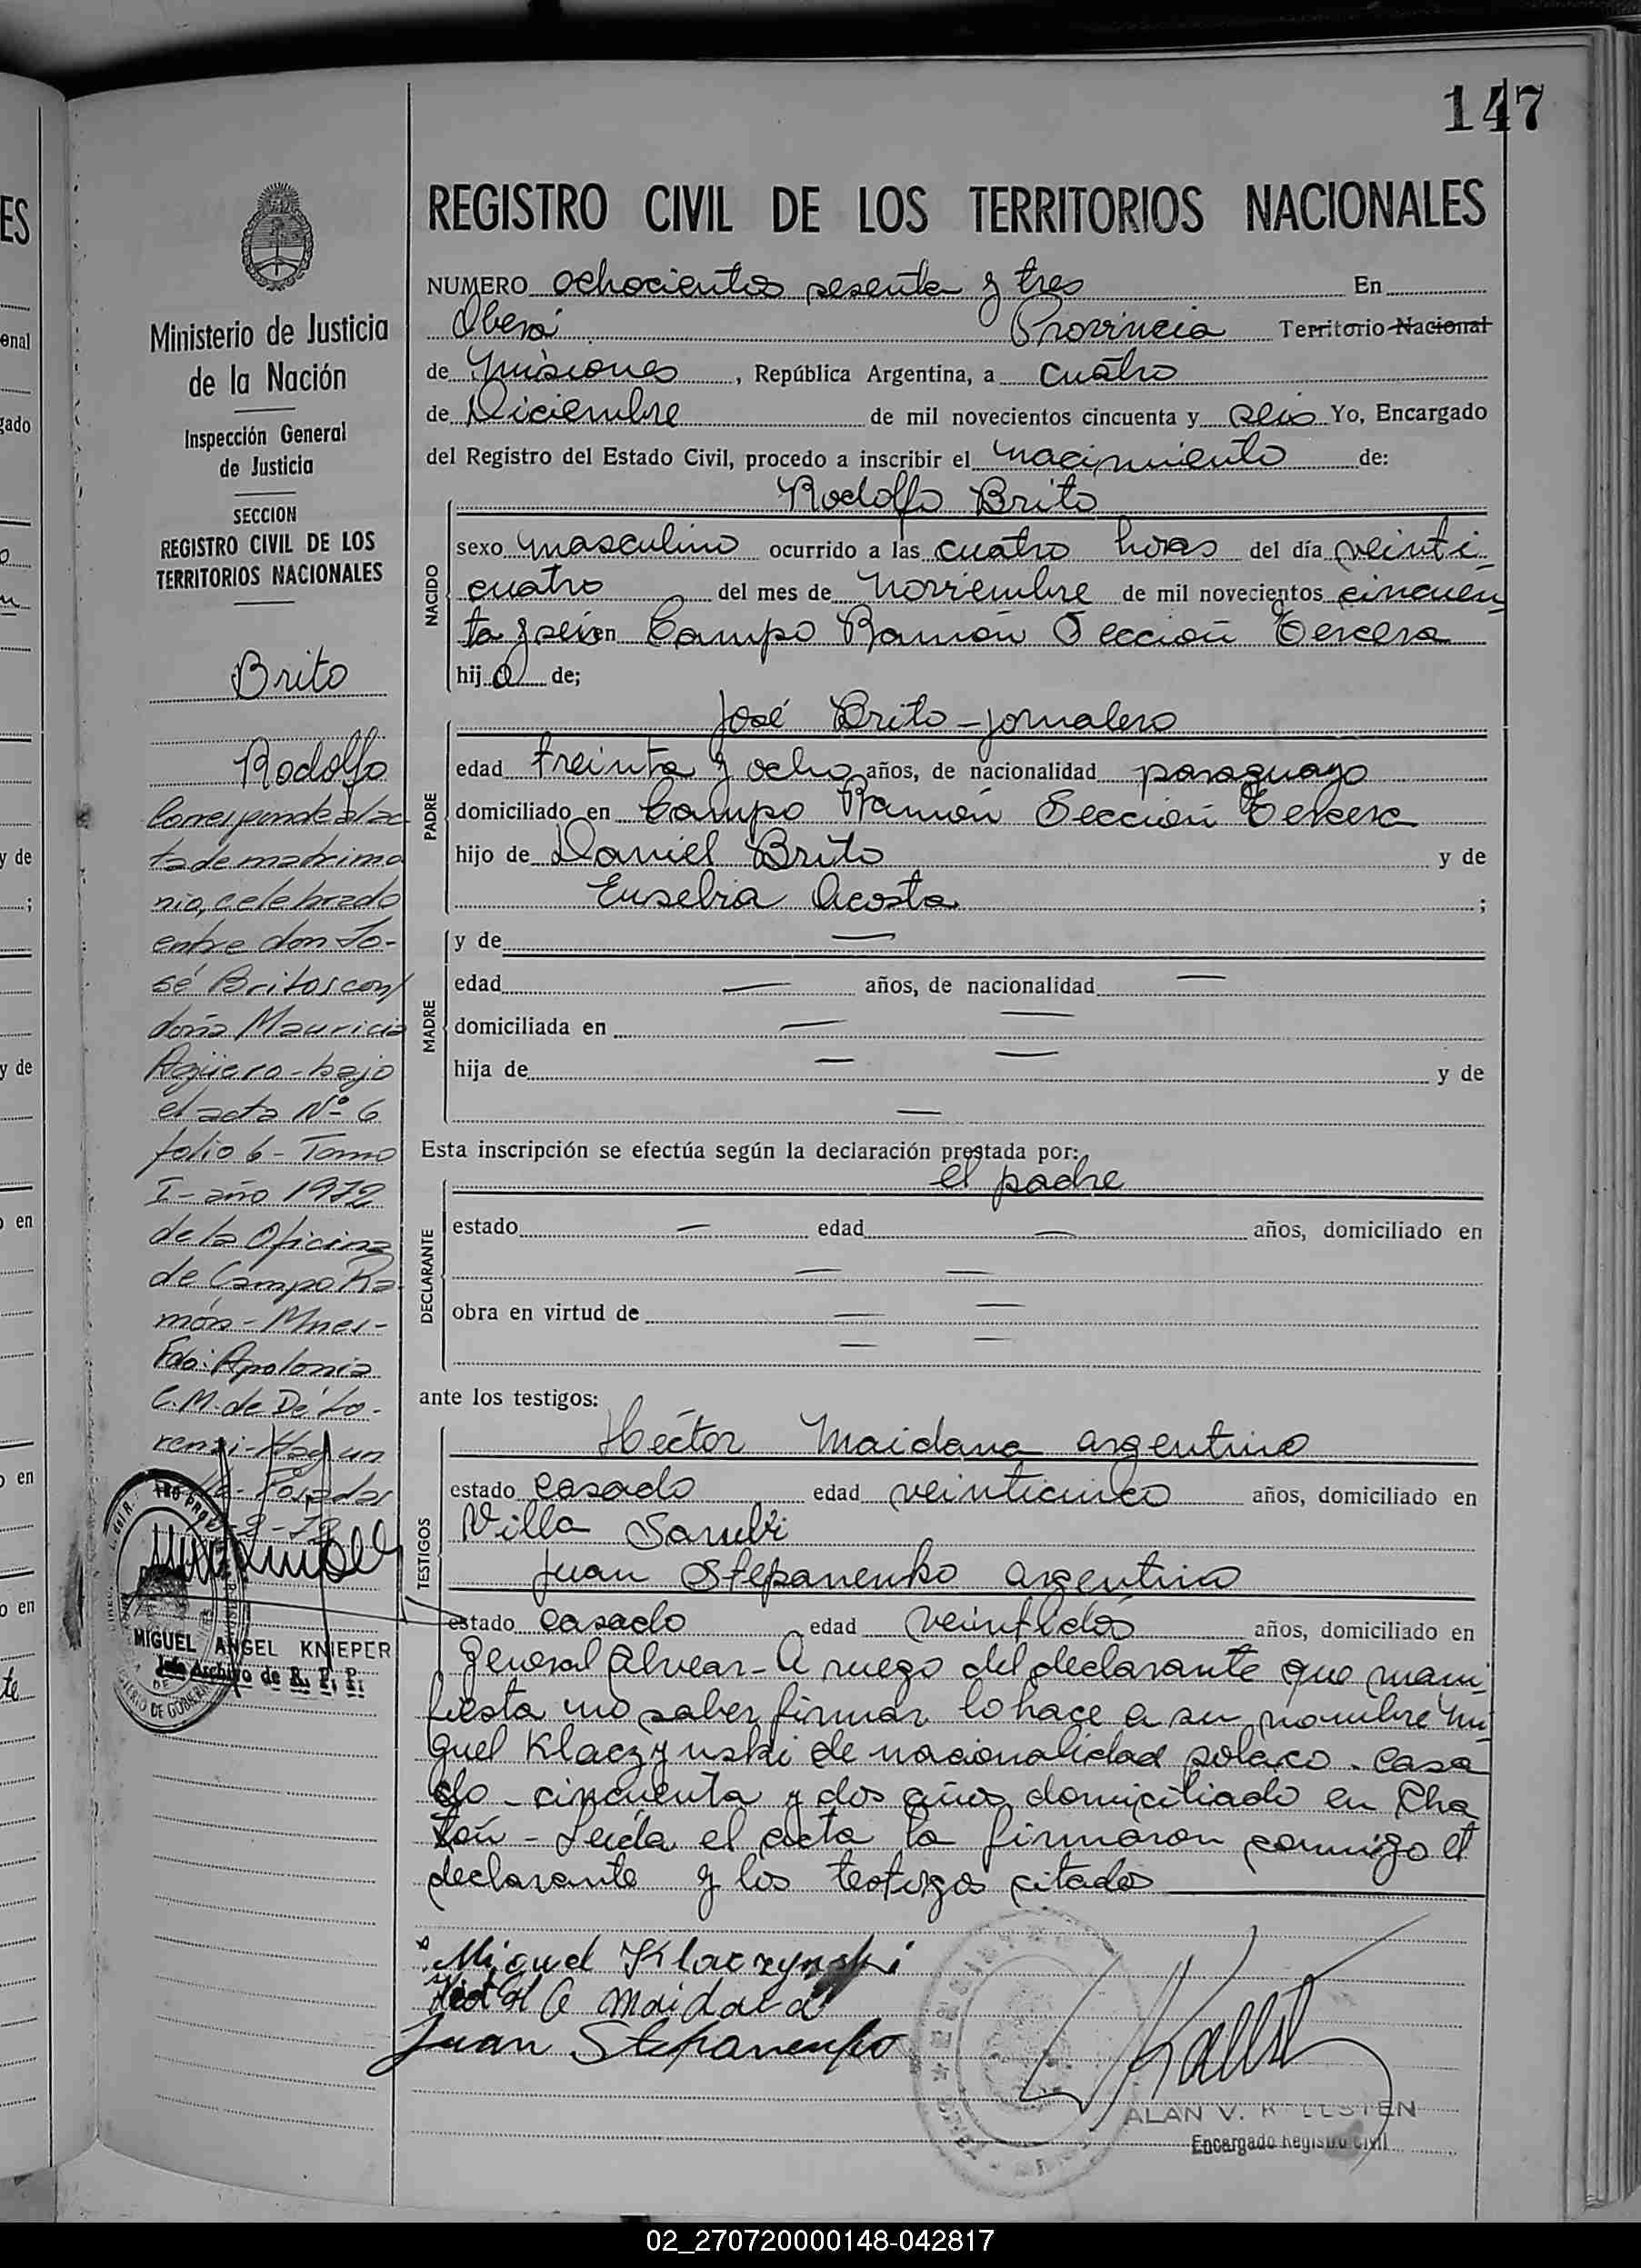 147
REGISTRO CIVIL DE LOS TERRITORIOS NACIONALES
Ministerio de Justicia
de la Nación
Inspección General
de Justicia
SECCION
REGISTRO CIVIL DE LOS
TERRITORIOS NACIONALES
Brito
Rodolfo
Corresponde al ac
ta de matrimo
nio, celebrado
entre don Jo-
sé Britos con
doña Mauricia
Agüero - bajo
el acta Nº 6
folio 6 - Tomo
I - año 1972
de la Oficina
de Campo Ra-
món - Mnes -
Fdo: Apolonia
C.M. de De Lo-
renzi - Hay un
Posadas
MIGUEL ANGEL KNIEPER
Jefe Archivo de R. P. P.
NUMERO ochocientos sesenta y tres En
Oberá Provincia Territorio Nacional
de Misiones, República Argentina, a cuatro
de Diciembre de mil novecientos cincuenta y seis Yo, Encargado
del Registro del Estado Civil, procedo a inscribir el nacimiento de:
NACIDO
Rodolfo Brito
sexo masculino ocurrido a las cuatro horas del día veinti
cuatro del mes de noviembre de mil novecientos cincuen
ta y seis en Campo Ramón Sección Tercera
hijo de;
PADRE
José Brito - jornalero
edad treinta y ocho años, de nacionalidad paraguayo
domiciliado en Campo Ramón Sección Tercera
hijo de Daniel Brito y de
Eusebia Acosta ;
MADRE
y de —
edad — años, de nacionalidad —
domiciliada en — —
hija de — — y de
—
Esta inscripción se efectúa según la declaración prestada por:
DECLARANTE
el padre
estado — edad — años, domiciliado en
— —
obra en virtud de — —
— —
ante los testigos:
TESTIGOS
Héctor Maidana argentino
estado casado edad veinticinco años, domiciliado en
Villa Sarubi
Juan Stepanenko argentino
estado casado edad veintidós años, domiciliado en
General Alvear - A ruego del declarante que mani
fiesta no saber firmar lo hace a su nombre Mi
guel Klaczynski de nacionalidad polaco - casa
do - cincuenta y dos años domiciliado en Cha
ton - Leída el acta la firmaron conmigo el
declarante y los testigos citados
Miguel Klaczynski
Maidana
Juan Stepanenko
ALAN V.
Encargado Registro Civil
02_270720000148-042817